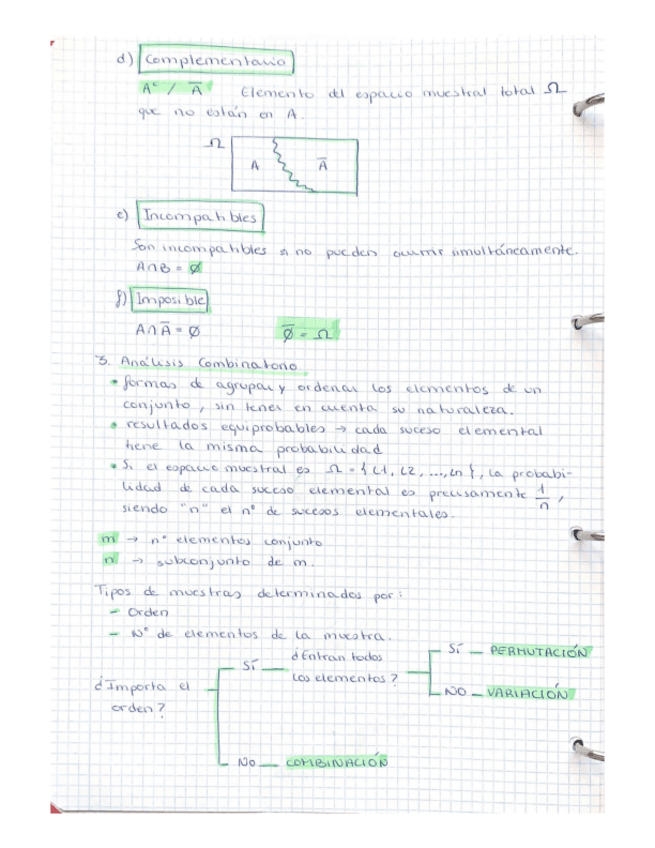 d) Complementario
Aᶜ / A̅ Elemento del espacio muestral total Ω
que no están en A.
Ω
A A̅
e) Incompatibles
Son incompatibles si no pueden ocurrir simultáneamente.
A∩B = ∅
f) Imposible
A∩A̅ = ∅ ∅̅ = Ω
3. Análisis Combinatorio.
• formas de agrupar y ordenar los elementos de un
conjunto, sin tener en cuenta su naturaleza.
• resultados equiprobables → cada suceso elemental
tiene la misma probabilidad
• Si el espacio muestral es Ω = { L1, L2, ..., Ln }, la probabi-
lidad de cada suceso elemental es precisamente 1/n,
siendo "n" el nº de sucesos elementales.
m → nº elementos conjunto
n → subconjunto de m.
Tipos de muestras determinados por:
- Orden
- Nº de elementos de la muestra.
¿Importa el
orden?
SÍ
¿Entran todos
los elementos?
SÍ — PERMUTACIÓN
NO — VARIACIÓN
NO — COMBINACIÓN